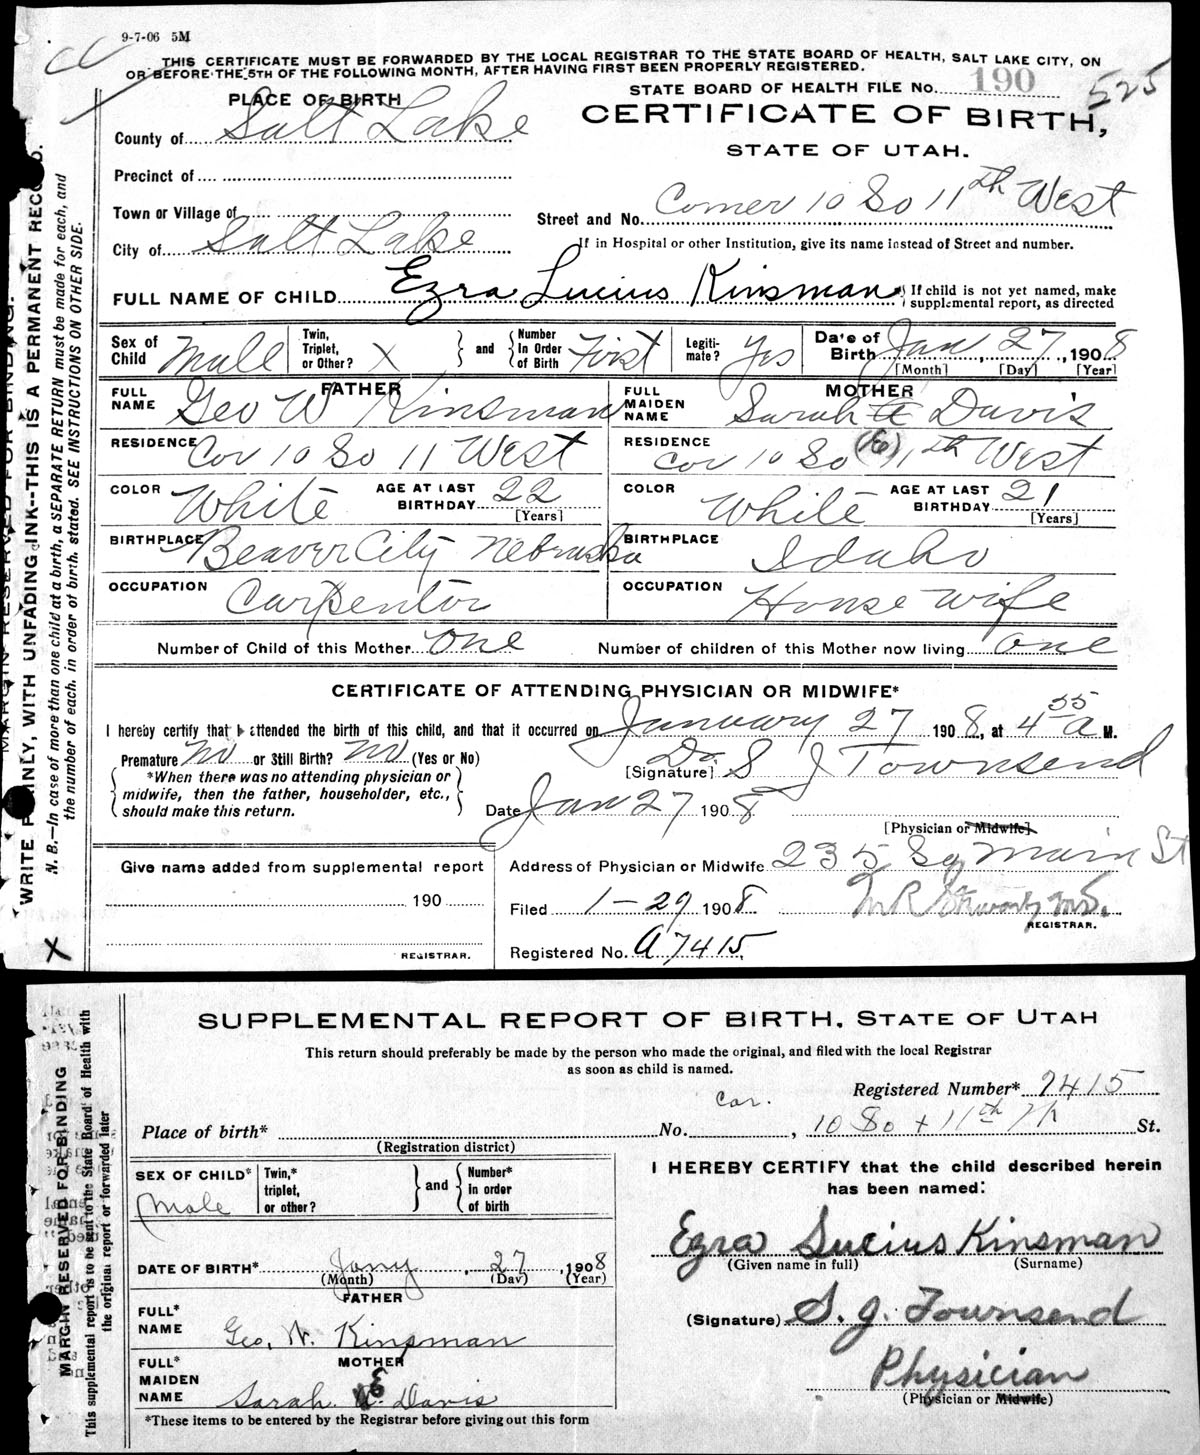 9-7-06 5M
THIS CERTIFICATE MUST BE FORWARDED BY THE LOCAL REGISTRAR TO THE STATE BOARD OF HEALTH, SALT LAKE CITY, ON
OR BEFORE THE 5TH OF THE FOLLOWING MONTH, AFTER HAVING FIRST BEEN PROPERLY REGISTERED.
STATE BOARD OF HEALTH FILE NO. 190 525
PLACE OF BIRTH
CERTIFICATE OF BIRTH,
STATE OF UTAH.
County of Salt Lake
Precinct of
Town or Village of
City of Salt Lake
Street and No. Corner 10 So 11th West
If in Hospital or other Institution, give its name instead of Street and number.
FULL NAME OF CHILD Ezra Lucius Kinsman If child is not yet named, make supplemental report, as directed
Sex of Child Male Twin, Triplet, or Other? X and Number In Order of Birth First Legitimate? Yes Date of Birth Jan 27, 1908
[Month] [Day] [Year]
FATHER MOTHER
FULL NAME Geo W Kinsman FULL MAIDEN NAME Sarah A Davis
(E)
RESIDENCE Cor 10 So 11 West RESIDENCE Cor 10 So 11th West
COLOR White AGE AT LAST BIRTHDAY 22 [Years] COLOR White AGE AT LAST BIRTHDAY 21 [Years]
BIRTHPLACE Beaver City Nebraska BIRTHPLACE Idaho
OCCUPATION Carpentor OCCUPATION House wife
Number of Child of this Mother one Number of children of this Mother now living one
CERTIFICATE OF ATTENDING PHYSICIAN OR MIDWIFE*
I hereby certify that I attended the birth of this child, and that it occurred on January 27 1908, at 4 55 a M.
Premature No or Still Birth? No (Yes or No)
[Signature] Dr. S J Townsend
*When there was no attending physician or
midwife, then the father, householder, etc.,
should make this return.
Date Jan 27 1908
[Physician or Midwife]
Give name added from supplemental report
190
REGISTRAR.
Address of Physician or Midwife 235 So Main St
Filed 1-29 1908
REGISTRAR.
Registered No. A7415
MARGIN RESERVED FOR BINDING.
WRITE PLAINLY, WITH UNFADING INK--THIS IS A PERMANENT RECORD.
N. B.—In case of more than one child at birth, a SEPARATE RETURN must be made for each, and
the number of each, in order of birth, stated. SEE INSTRUCTIONS ON OTHER SIDE.
X
SUPPLEMENTAL REPORT OF BIRTH. STATE OF UTAH
This return should preferably be made by the person who made the original, and filed with the local Registrar
as soon as child is named.
Registered Number* 7415
Place of birth* No. Cor. , 10 So + 11th St.
(Registration district)
SEX OF CHILD* Male Twin,* triplet, or other? and Number* in order of birth
DATE OF BIRTH* Jany 27, 1908
(Month) (Day) (Year)
FATHER
FULL* NAME Geo. W. Kinsman
MOTHER
FULL* MAIDEN NAME Sarah E. Davis
*These items to be entered by the Registrar before giving out this form
I HEREBY CERTIFY that the child described herein
has been named:
Ezra Lucius Kinsman
(Given name in full) (Surname)
(Signature) S. J. Townsend
Physician
(Physician or Midwife)
MARGIN RESERVED FOR BINDING
This supplemental report is to be sent to the State Board of Health with
the original report or forwarded later